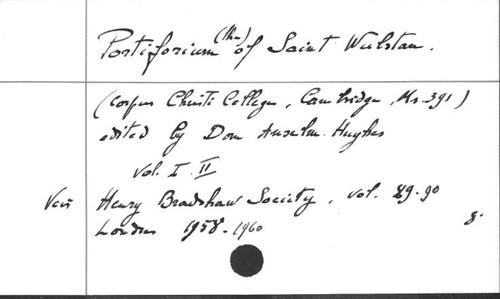 Portiforium (the) of Saint Wulstan.
(Corpus Christi College, Cambridge, Ms. 391)
edited by Dom Anselm Hughes
vol. I. II
Henry Bradshaw Society, vol. 89-90
Londres 1958-1960
8.